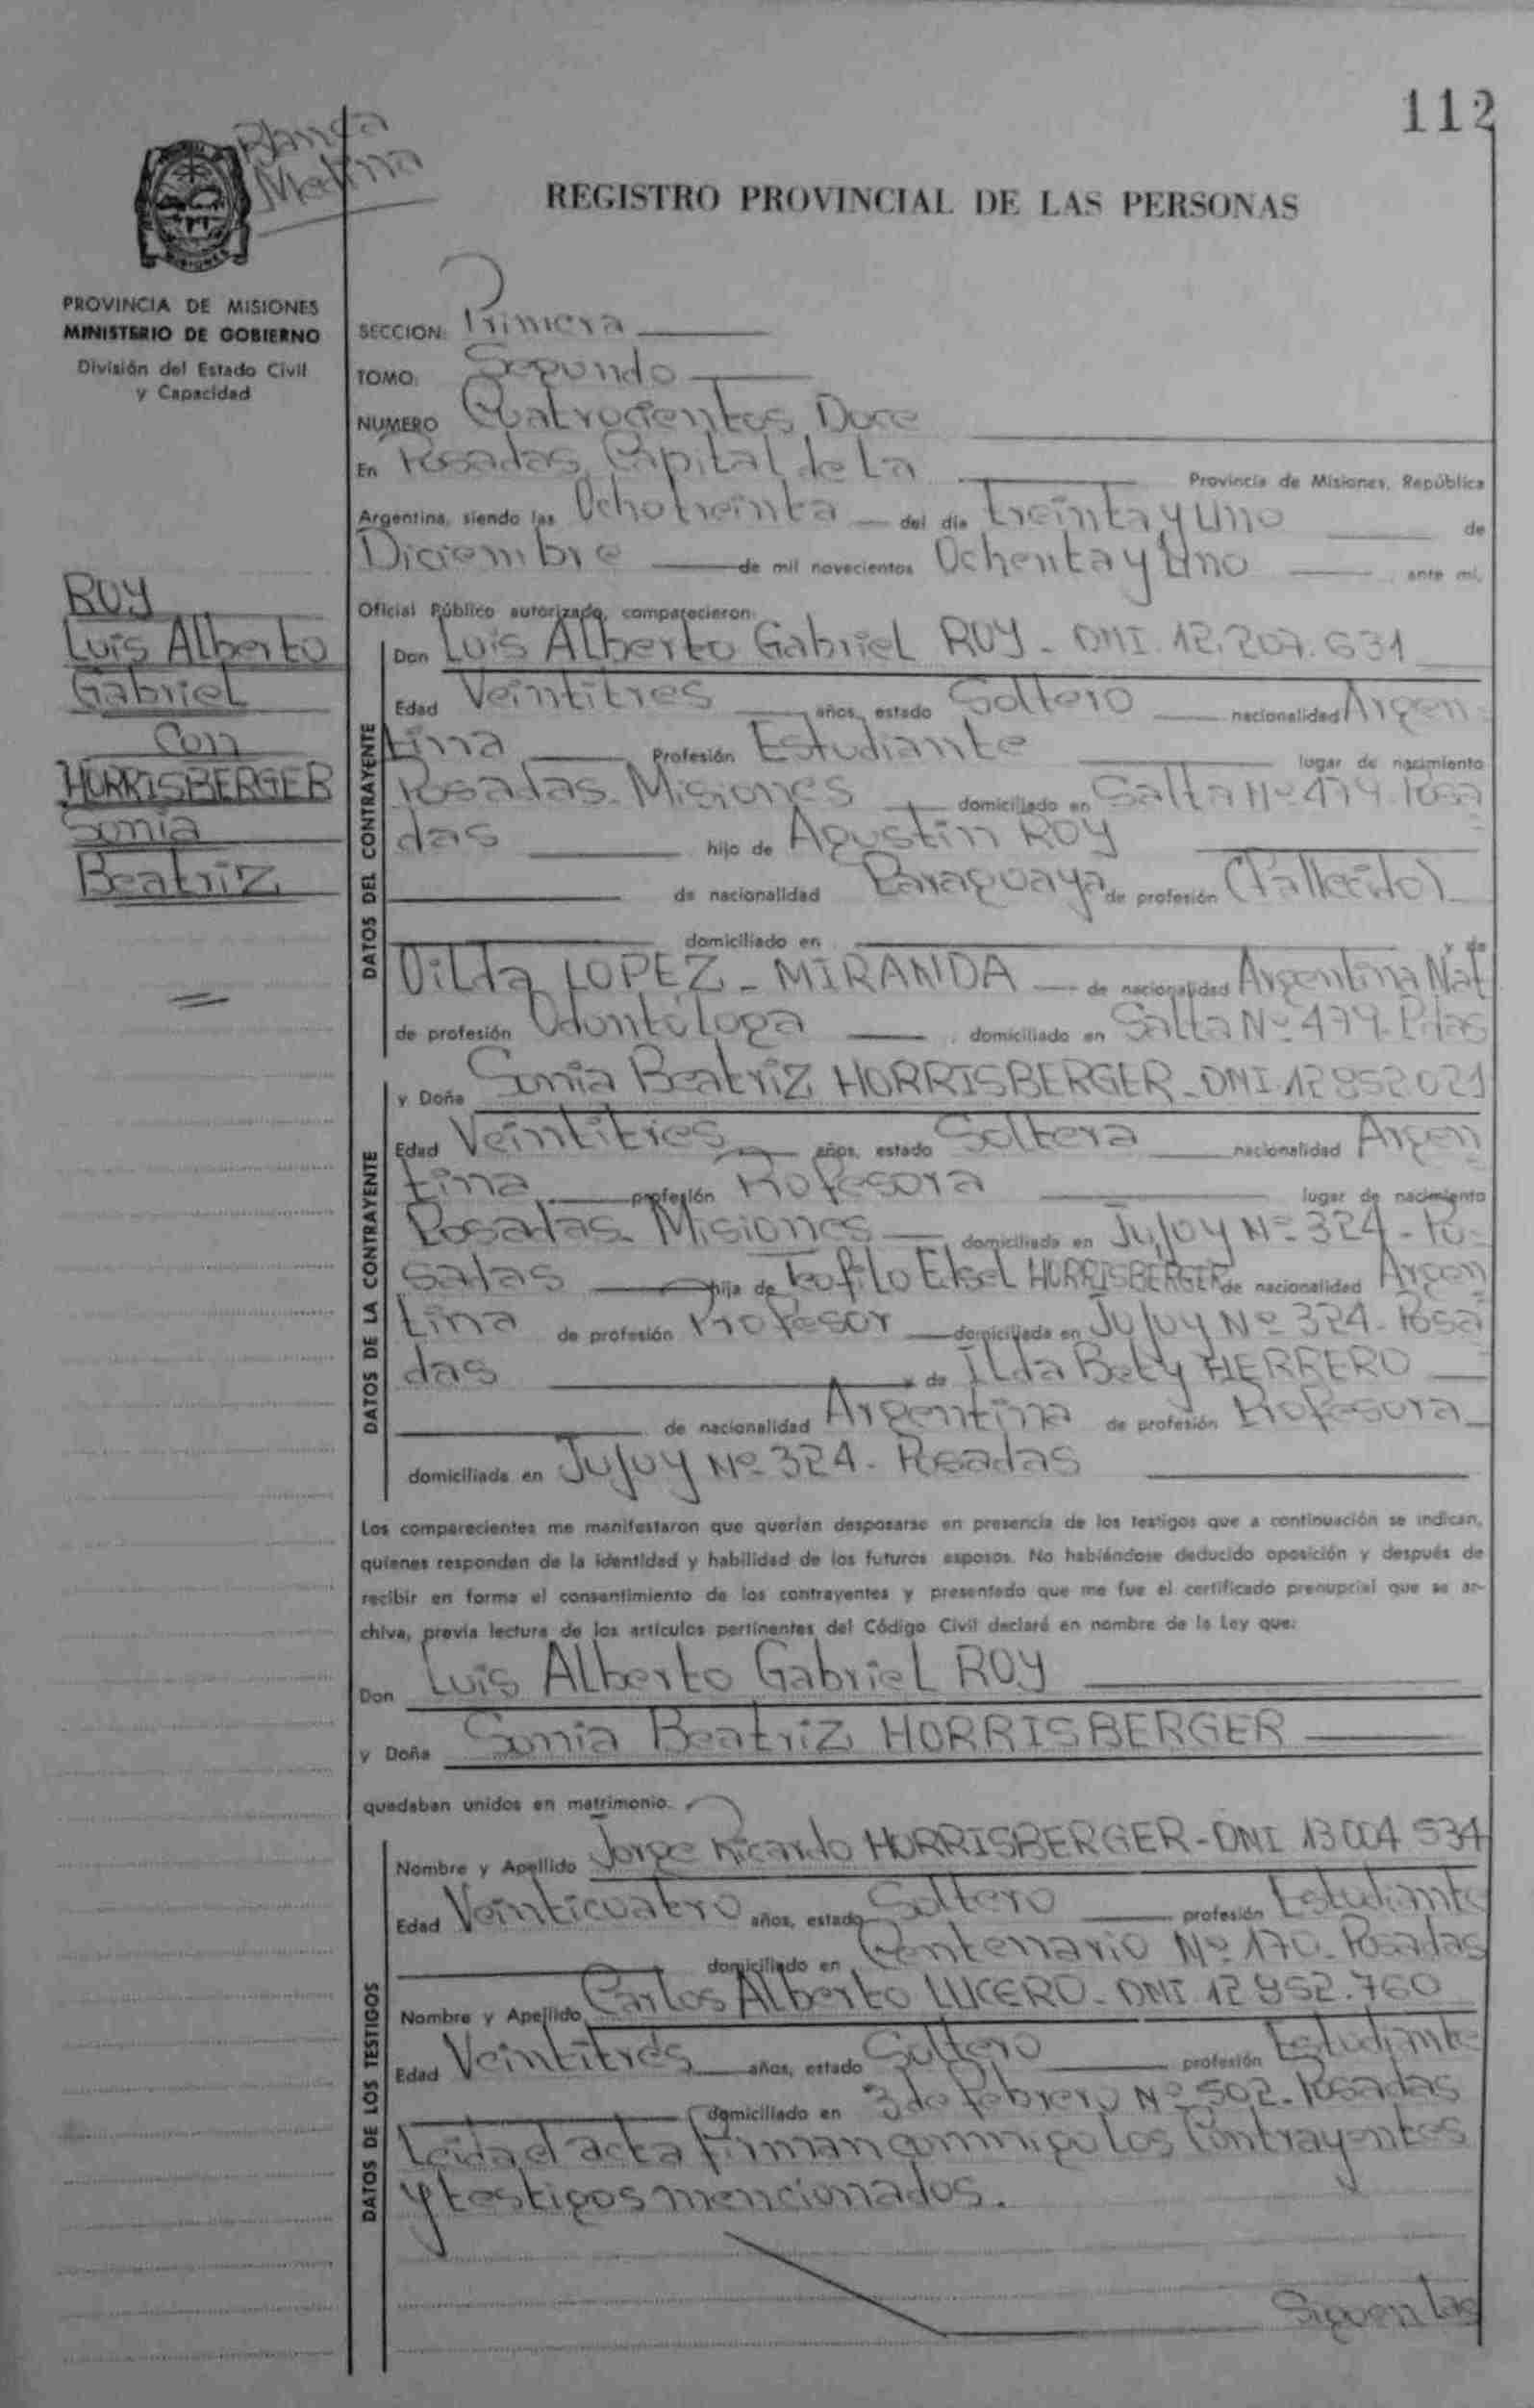 112
Blanca
Medina
REGISTRO PROVINCIAL DE LAS PERSONAS
MISIONES
PROVINCIA DE MISIONES
MINISTERIO DE GOBIERNO
División del Estado Civil
y Capacidad
SECCION: Primera
TOMO: Segundo
NUMERO Cuatrocientos Doce
En Posadas, Capital de La Provincia de Misiones, República
Argentina, siendo las Ocho treinta del día treinta y Uno de
Diciembre de mil novecientos Ochenta y Uno ante mí,
Oficial Público autorizado, comparecieron:
ROY
Luis Alberto
Gabriel
Con
HORRISBERGER
Sonia
Beatriz
DATOS DEL CONTRAYENTE
Don Luis Alberto Gabriel ROY - DNI. 12.207.631
Edad Veintitres años, estado Soltero nacionalidad Argen
tina Profesión Estudiante lugar de nacimiento
Posadas. Misiones domiciliado en Salta Nº 479. Posa
das hijo de Agustín ROY
de nacionalidad Paraguaya de profesión (Fallecido)
domiciliado en y de
Dilda LOPEZ - MIRANDA de nacionalidad Argentina Nat
de profesión Odontóloga domiciliado en Salta Nº 479. Pdas
DATOS DE LA CONTRAYENTE
y Doña Sonia Beatriz HORRISBERGER - DNI. 12 852 021
Edad Veintitres años, estado Soltera nacionalidad Argen
tina profesión Profesora lugar de nacimiento
Posadas. Misiones domiciliada en Jujoy Nº 324 - Po
sadas hija de Teofilo HORRISBERGER de nacionalidad Argen
tina de profesión Profesor domiciliada en Jujuy Nº 324. Posa
das y de Ilda Bety HERRERO
de nacionalidad Argentina de profesión Profesora
domiciliada en Jujuy Nº 324. Posadas
Los comparecientes me manifestaron que querían desposarse en presencia de los testigos que a continuación se indican,
quienes responden de la identidad y habilidad de los futuros esposos. No habiéndose deducido oposición y después de
recibir en forma el consentimiento de los contrayentes y presentado que me fue el certificado prenupcial que se ar-
chiva, previa lectura de los artículos pertinentes del Código Civil declaré en nombre de la Ley que:
Don Luis Alberto Gabriel ROY
y Doña Sonia Beatriz HORRISBERGER
quedaban unidos en matrimonio.
DATOS DE LOS TESTIGOS
Nombre y Apellido Jorge Ricardo HORRISBERGER - DNI 13 004 534
Edad Veinticuatro años, estado Soltero profesión Estudiante
domiciliado en Centenario Nº 170. Posadas
Nombre y Apellido Carlos Alberto LUCERO - DNI 12 852.760
Edad Veintitrés años, estado Soltero profesión Estudiante
domiciliado en 3 de Febrero Nº 502. Posadas
Leida el acta firman conmigo los Contrayentes
y testigos mencionados.
Siguen las